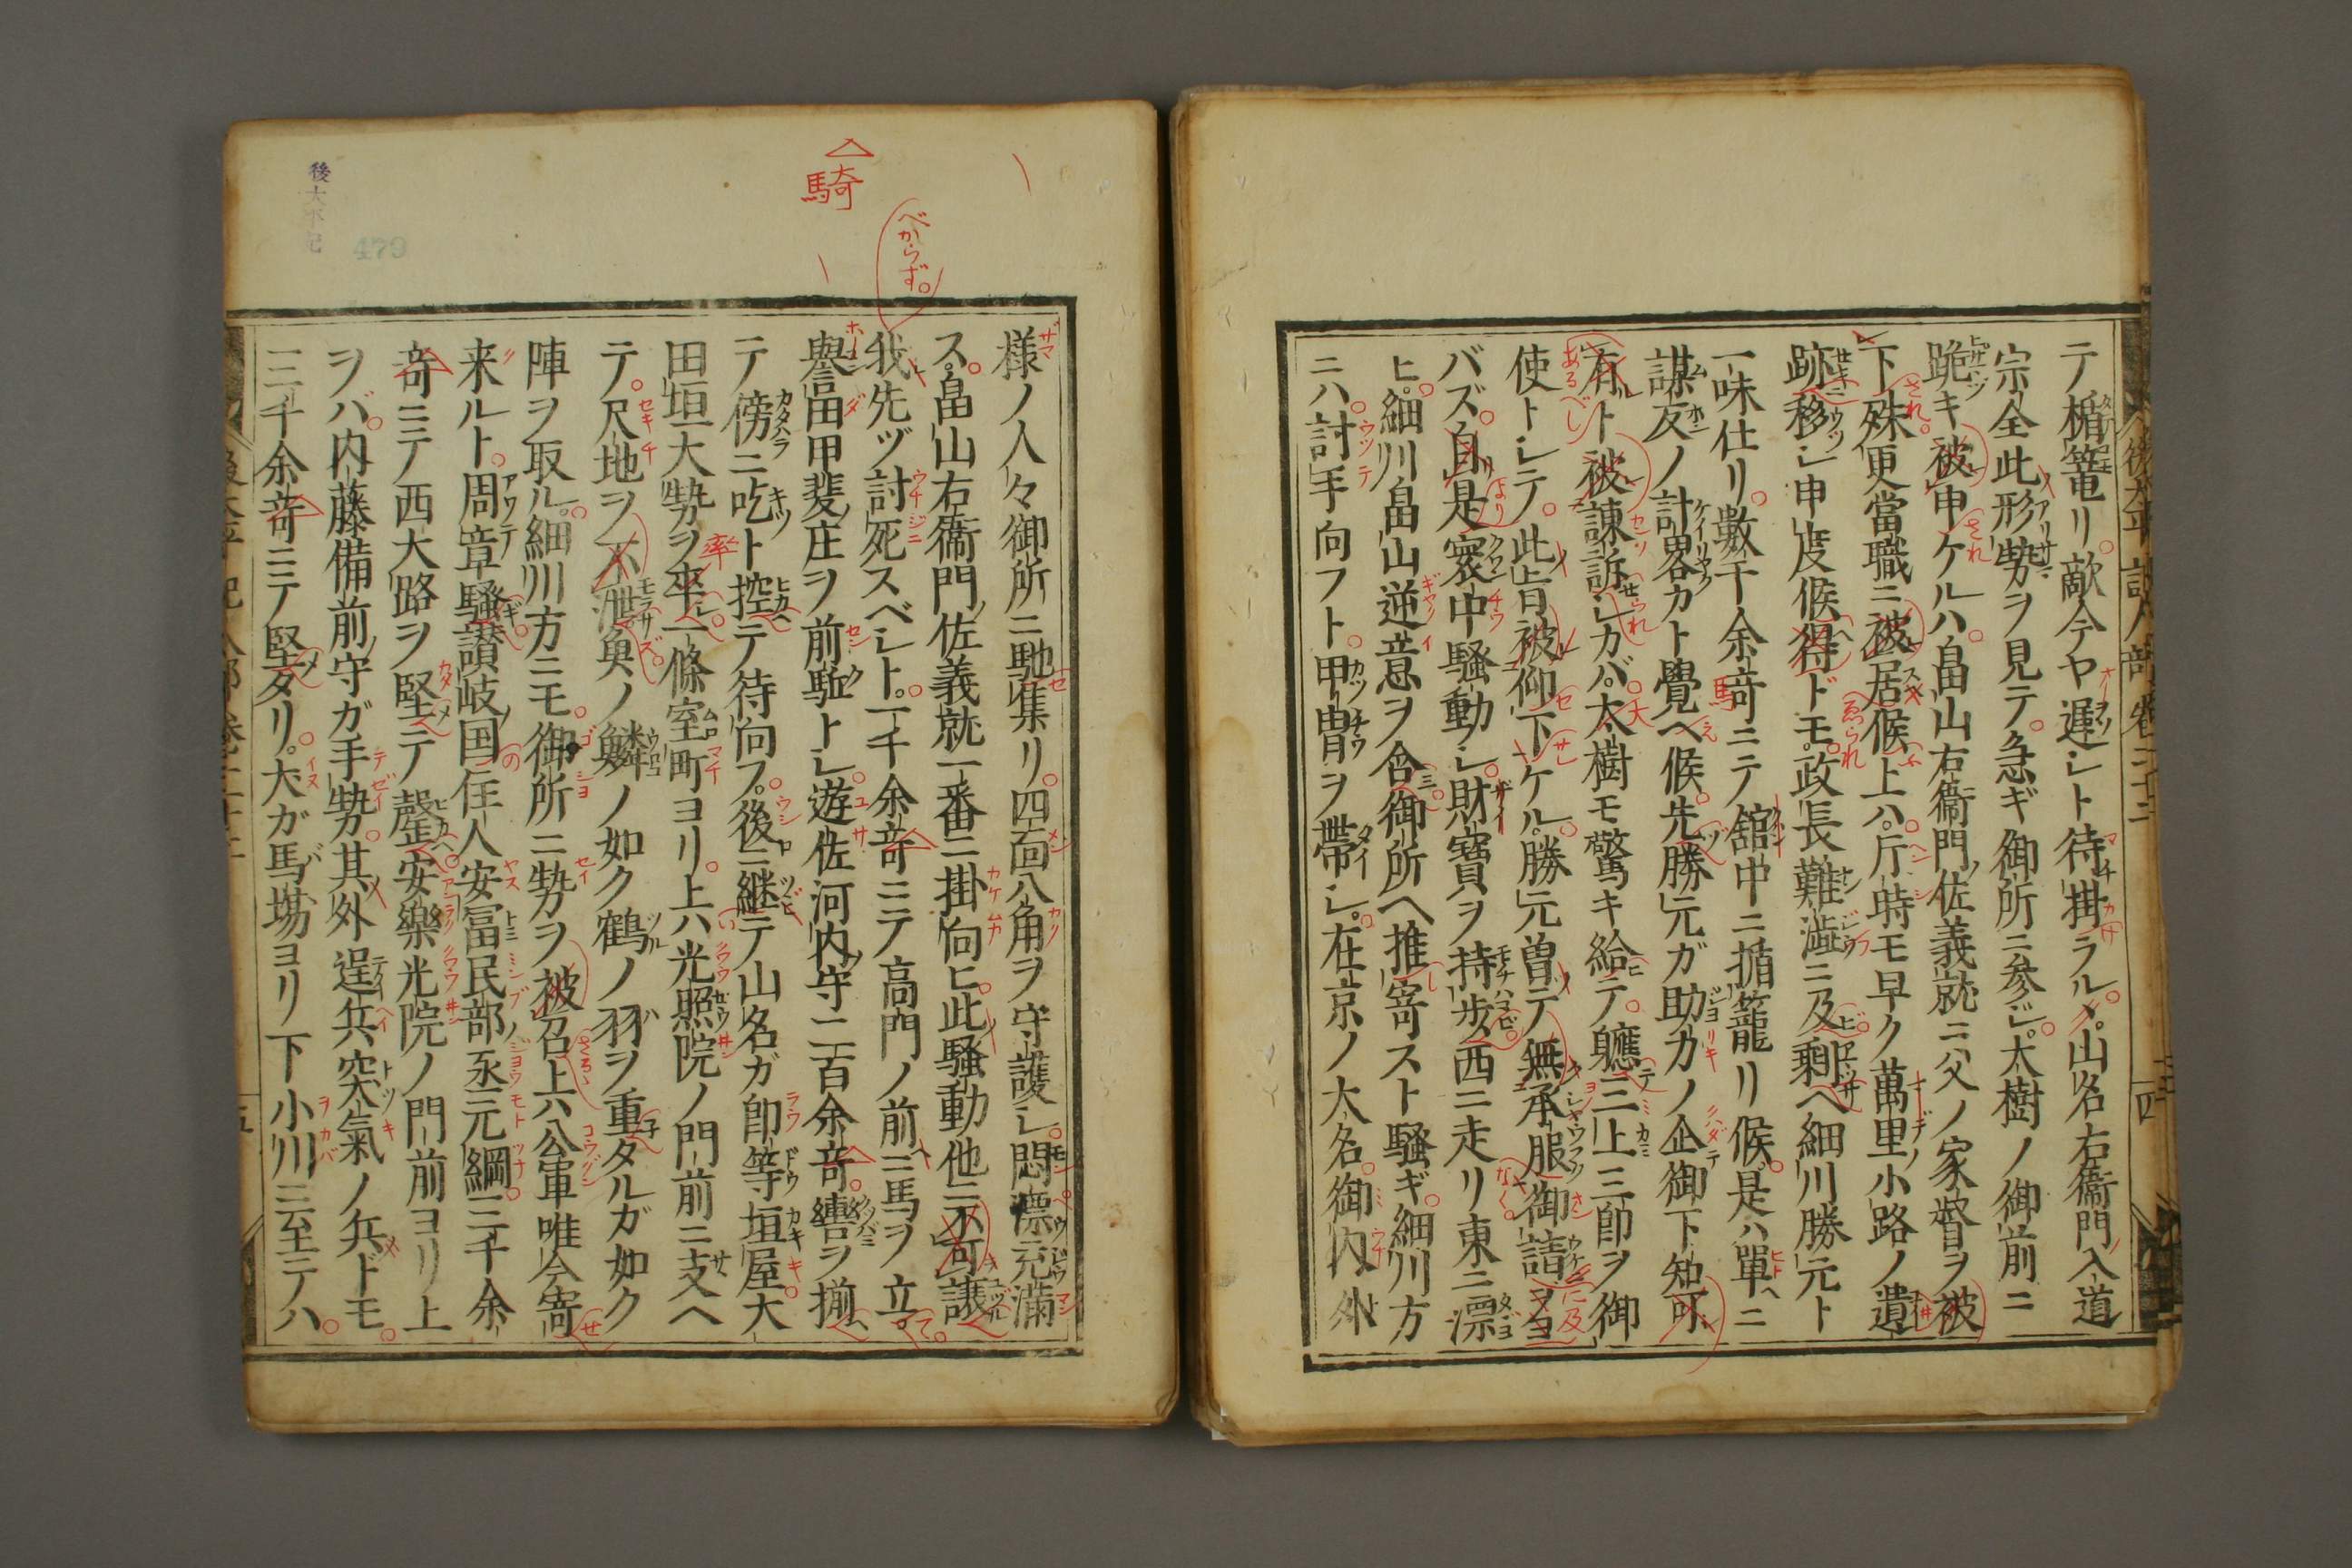 テ楯篭リ敵今ヤ遅シト待掛ラル山名右衞門入道
宗全此形勢ヲ見テ急ギ御所ニ参ジ太樹ノ御前ニ
跪キ被申ケルハ畠山右衞門佐義就ニ父ノ家督ヲ被
下殊更當職ニ被居候上ハ片時モ早ク萬里小路ノ遺
跡移シ申度候得ドモ政長難澁ニ及剰ヘ細川勝元ト
一味仕リ數千余竒ニテ舘中ニ楯籠リ候是ハ單ニ
謀反ノ計畧カト覺ヘ候先勝元ガ助力ノ企御下知可
有ト被諫訴シカバ太樹モ驚キ給テ軈三上三郎ヲ御
使トシテ此旨被仰下ケル勝元曽テ無承服御請ヲヨ
バズ自是寰中騒動シ財寶ヲ持歩西ニ走リ東ニ漂
ヒ細川畠山逆意ヲ含御所ヘ推寄スト騒ギ細川方
ニハ討手向フト甲冑ヲ帯シ在京ノ大名御内外
様ノ人々御所ニ馳集リ四面八角ヲ守護シ悶漂充満
ス畠山右衞門佐義就一番ニ掛向ヒ此騒動他ニ不可譲
我先ヅ討死スベシト一千余竒ニテ高門ノ前ニ馬ヲ立
譽田甲斐庄ヲ前駈トシ遊佐河内守二百余竒轡ヲ揃
テ傍ニ吃ト控テ待向フ後ニ継テ山名ガ郎等垣屋大
田垣大勢ヲ率一條室町ヨリ上ハ光照院ノ門前ニ支ヘ
テ尺地ヲ不泄魚ノ鱗ノ如ク鶴ノ羽ヲ重タルガ如ク
陣ヲ取ル細川方ニモ御所ニ勢ヲ被召上ハ公軍唯今寄
来ルト周章騒讃岐国住人安富民部丞元綱三千余
竒ニテ西大路ヲ堅テ磬安樂光院ノ門前ヨリ上
ヲバ内藤備前守ガ手勢其外逞兵突氣ノ兵ドモ
三千余竒ニテ堅タリ犬ガ馬塲ヨリ下小川ニ至テハ
騎
べからず。
後太平記
479